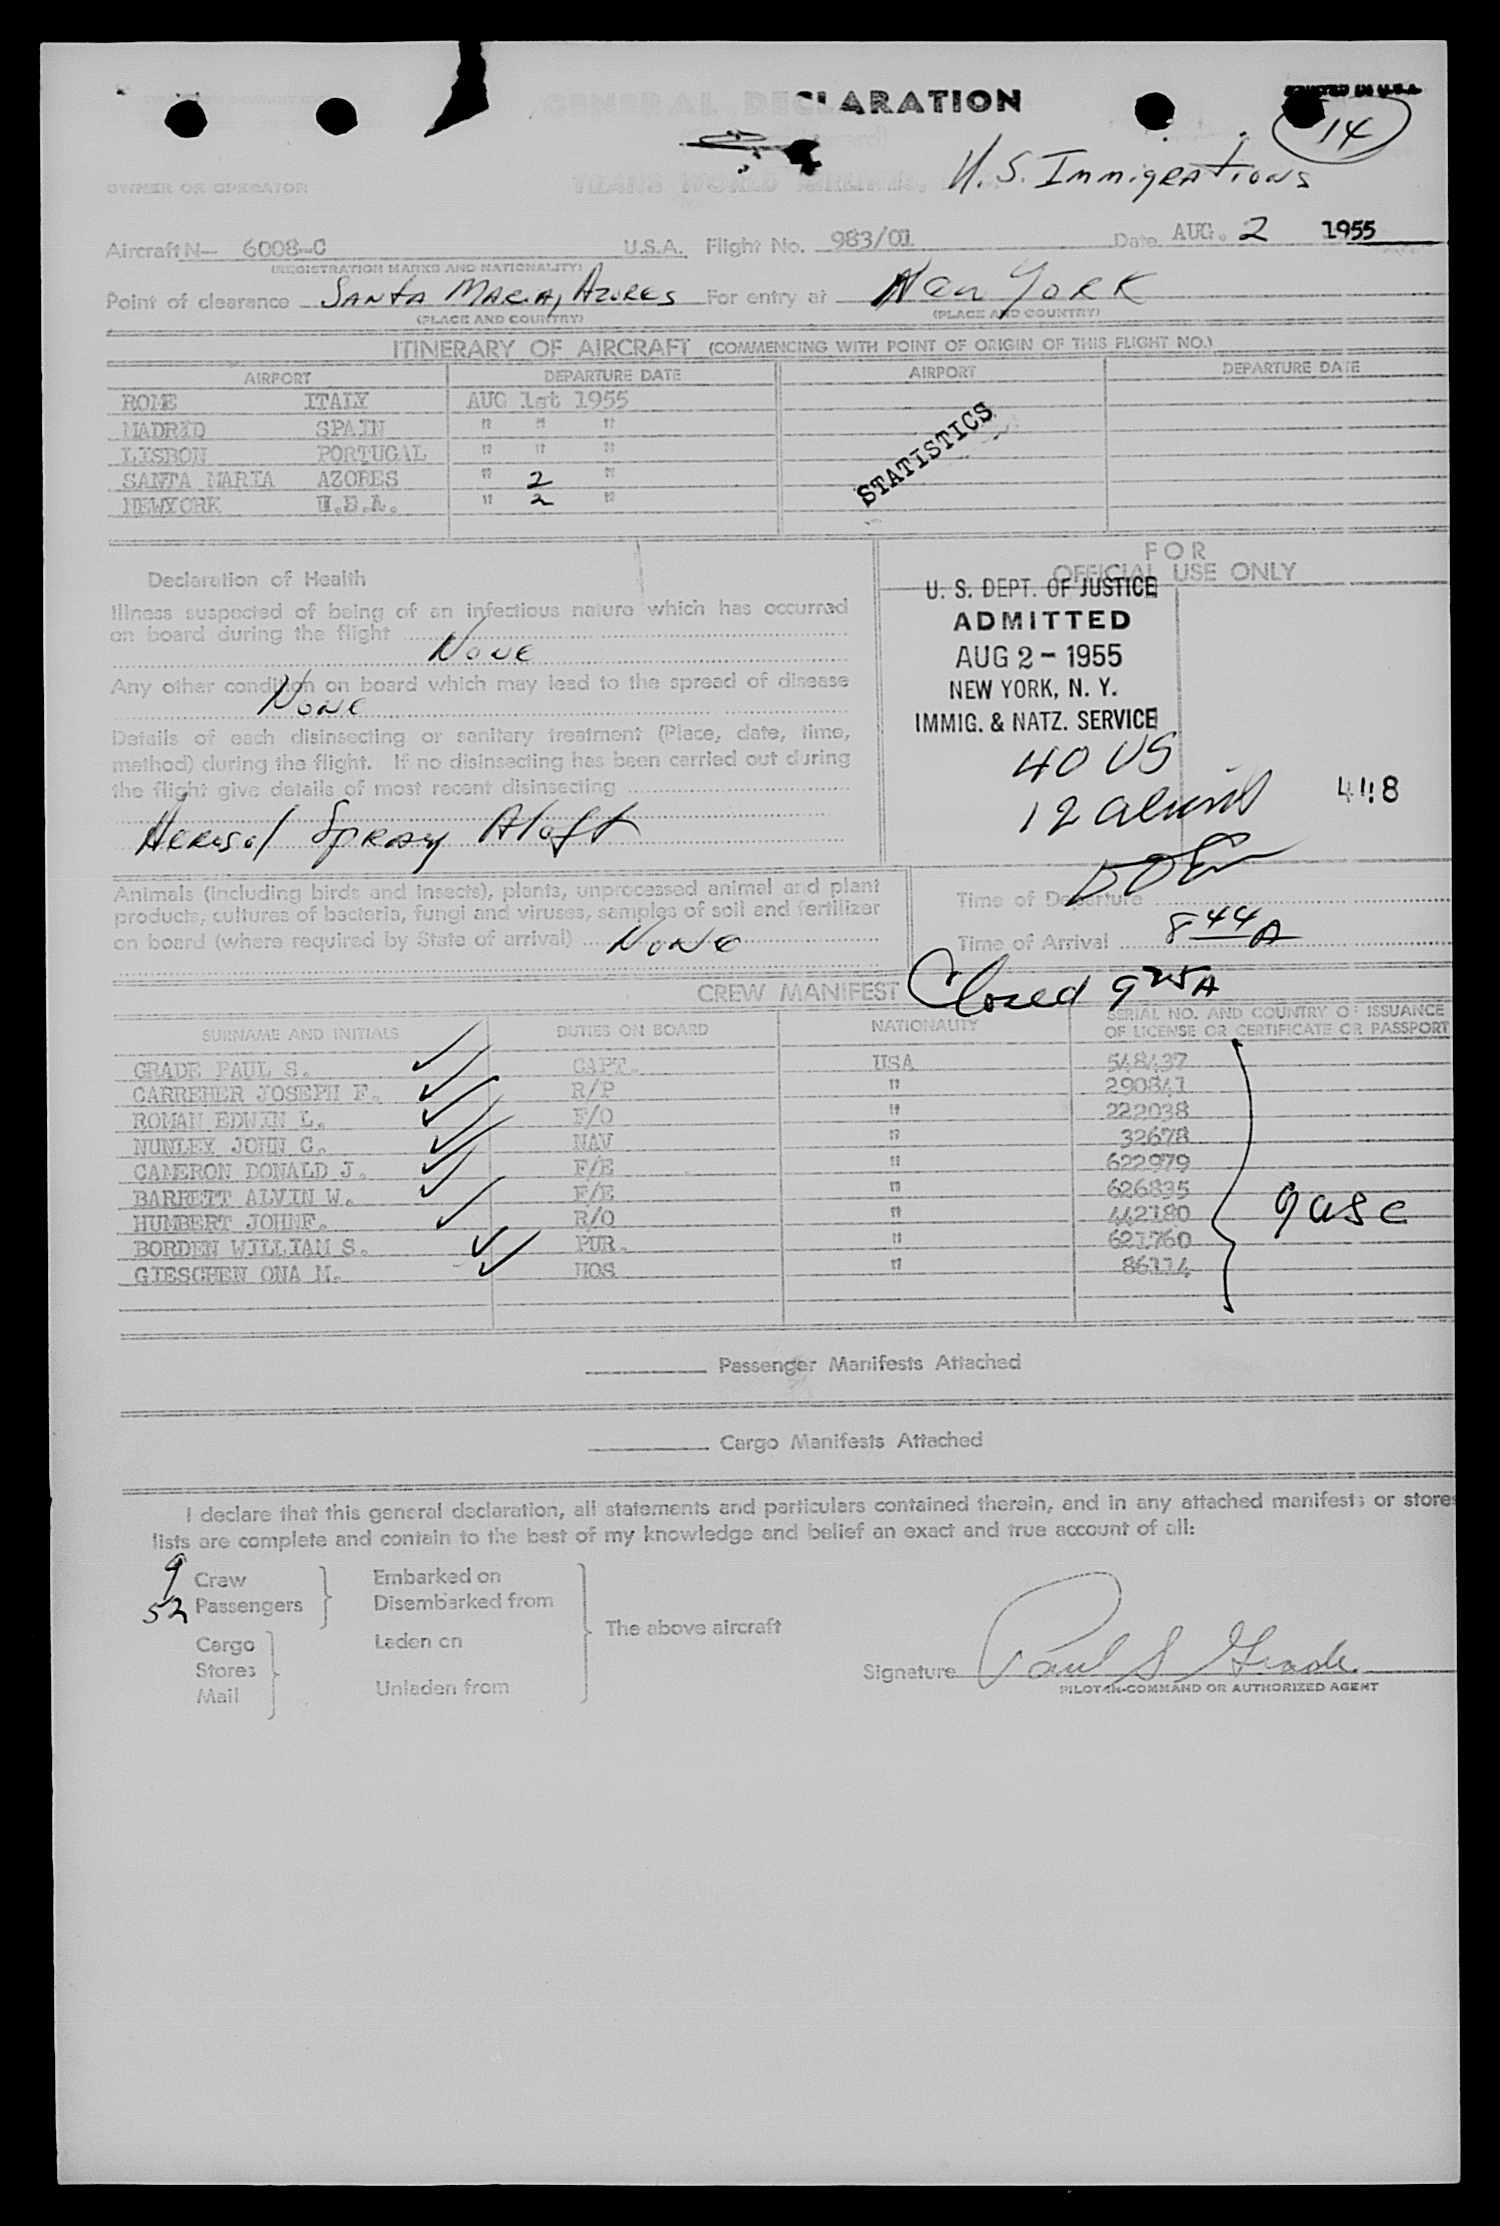 GENERAL DECLARATION
14
U.S. Immigrations
OWNER OR OPERATOR TRANS WORLD AIRLINES,
Aircraft N- 6008-C U.S.A. Flight No. 983/01 Date AUG. 2 1955
(REGISTRATION MARKS AND NATIONALITY)
Point of clearance SANTA MARIA, AZORES For entry at New YORK
(PLACE AND COUNTRY) (PLACE AND COUNTRY)
ITINERARY OF AIRCRAFT (COMMENCING WITH POINT OF ORIGIN OF THIS FLIGHT NO.)
AIRPORT DEPARTURE DATE AIRPORT DEPARTURE DATE
ROME ITALY AUG 1st 1955
MADRID SPAIN " " "
LISBON PORTUGAL " " "
SANTA MARIA AZORES " 2 "
NEWYORK U.S.A. " 2 "
STATISTICS
FOR
OFFICIAL USE ONLY
Declaration of Health
Illness suspected of being of an infectious nature which has occurred
on board during the flight
None
Any other condition on board which may lead to the spread of disease
None
Details of each disinsecting or sanitary treatment (Place, date, time,
method) during the flight. If no disinsecting has been carried out during
the flight give details of most recent disinsecting
Aerosol Spray Aloft
U. S. DEPT. OF JUSTICE
ADMITTED
AUG 2 - 1955
NEW YORK, N. Y.
IMMIG. & NATZ. SERVICE
40 US
12 aliens
Animals (including birds and insects), plants, unprocessed animal and plant
products, cultures of bacteria, fungi and viruses, samples of soil and fertilizer
on board (where required by State of arrival) NONE
Time of Departure
Time of Arrival 8 44 A
Closed 9 25 A
CREW MANIFEST
SURNAME AND INITIALS DUTIES ON BOARD NATIONALITY SERIAL NO. AND COUNTRY OF ISSUANCE
OF LICENSE OR CERTIFICATE OR PASSPORT
GRADE PAUL S. CAPT. USA 548437
CARREHER JOSEPH F. R/P " 290841
ROMAN EDWIN L. F/O " 222038
NUNLEY JOHN C. NAV " 32678
CAMERON DONALD J. F/E " 622979
BARRETT ALVIN W. F/E " 626835
HUMBERT JOHNF. R/O " 442180
BORDEN WILLIAM S. PUR. " 621760
GIESCHEN ONA M. HOS " 86114
9 usc
Passenger Manifests Attached
Cargo Manifests Attached
I declare that this general declaration, all statements and particulars contained therein, and in any attached manifests or stores
lists are complete and contain to the best of my knowledge and belief an exact and true account of all:
9 Crew Embarked on
52 Passengers Disembarked from
The above aircraft
Cargo Laden on
Stores
Mail Unladen from
Signature Paul S Grade
PILOT-IN-COMMAND OR AUTHORIZED AGENT